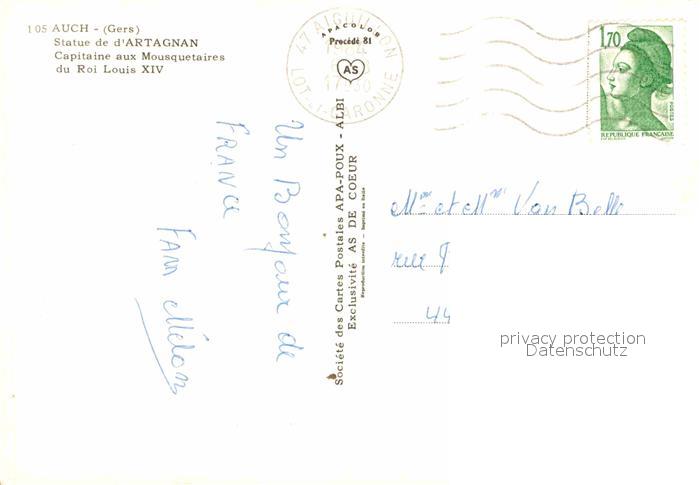 105 AUCH - (Gers)
Statue de d'ARTAGNAN
Capitaine aux Mousquetaires
du Roi Louis XIV
47 AIGUILLON
LOT-ET-GARONNE
APACOLOR
Procédé 81
AS
1,70
POSTES
REPUBLIQUE FRANÇAISE
Un Bonjour de
FRANCE
FAM Mélon
Société des Cartes Postales APA-POUX - ALBI
Exclusivité AS DE COEUR
Reproduction interdite - Imprimé en Italie
Mme et Mr Van Belle
rue
44
privacy protection
Datenschutz